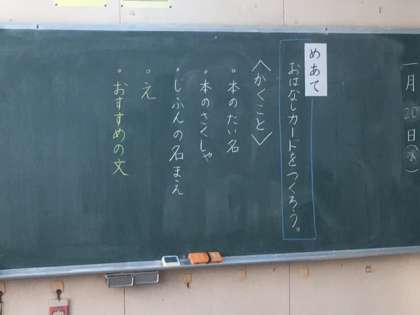 一月20日(水)
めあて
おはなしカードをつくろう。
<かくこと>
・本のだい名
・本のさくしゃ
・じぶんの名まえ
・え
・おすすめの文